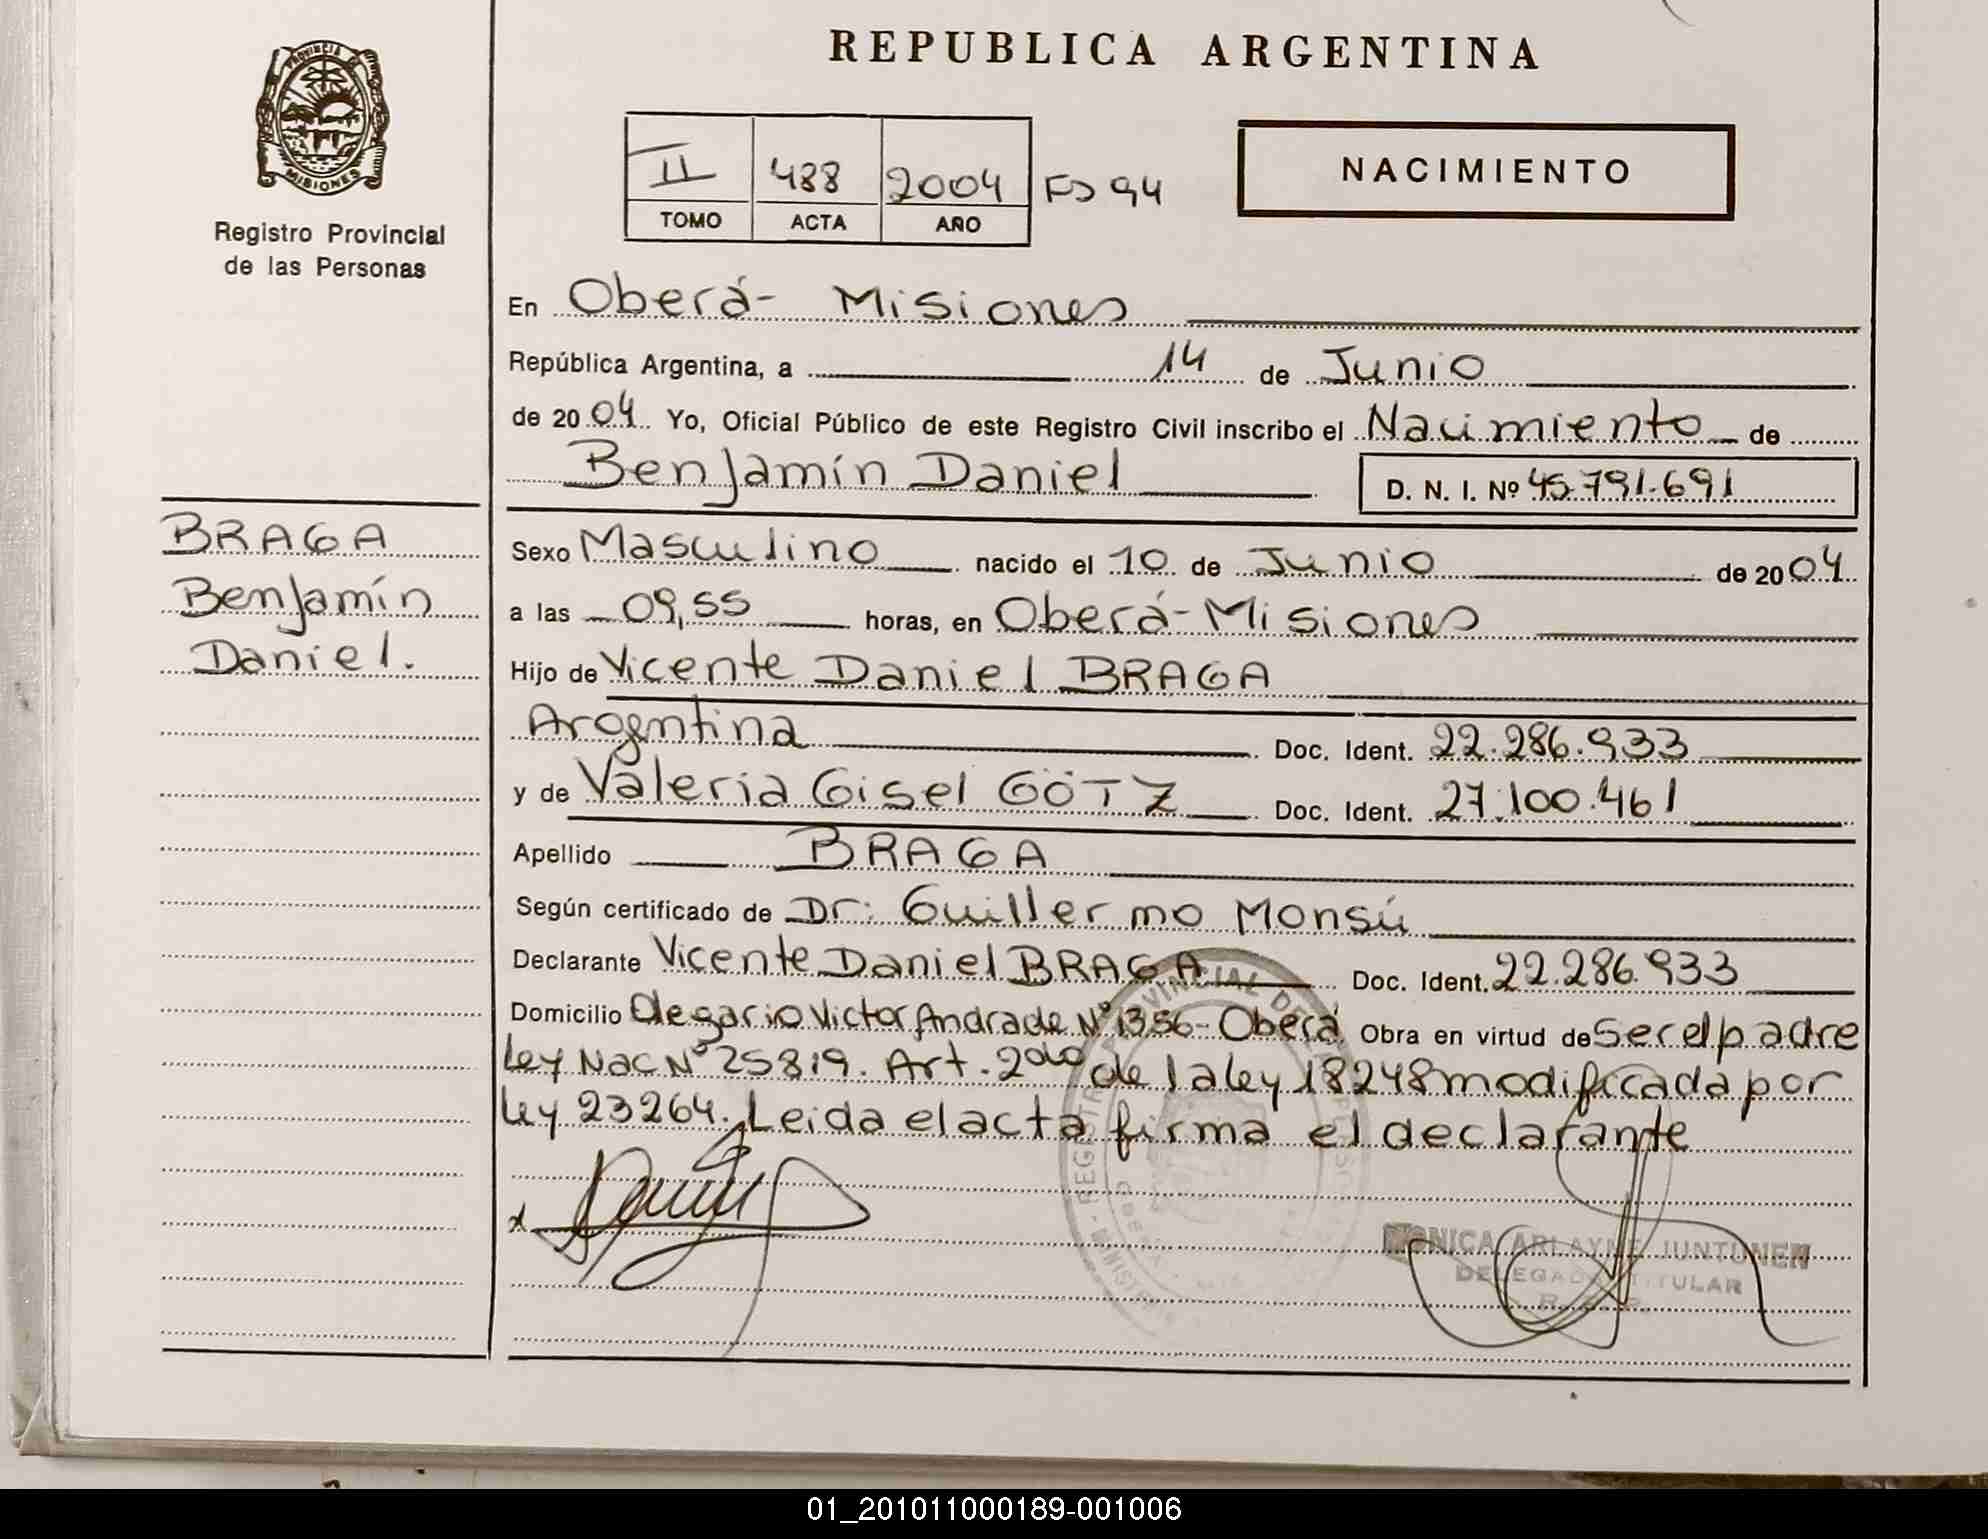 REPUBLICA ARGENTINA
PROVINCIA DE
MISIONES
Registro Provincial
de las Personas
II 488 2004 Fº 94
TOMO ACTA AÑO
NACIMIENTO
En Oberá- Misiones
República Argentina, a 14 de Junio
de 2004 Yo, Oficial Público de este Registro Civil inscribo el Nacimiento de
Benjamín Daniel D. N. I. Nº 45.791.691
BRAGA
Benjamín
Daniel.
Sexo Masculino nacido el 10 de Junio de 2004
a las 09,55 horas, en Oberá-Misiones
Hijo de Vicente Daniel BRAGA
Argentina Doc. Ident. 22.286.933
y de Valeria Gisel GÖTZ Doc. Ident. 27.100.461
Apellido BRAGA
Según certificado de Dr: Guillermo Monsú
Declarante Vicente Daniel BRAGA Doc. Ident. 22.286.933
Domicilio Olegario Victor Andrade Nº 1356- Oberá Obra en virtud de Ser el padre
Ley Nac Nº 25819. Art. 2do de la ley 18248 modificada por
Ley 23264. Leida el acta firma el declarante
x
MONICA ARLAYNE JUNTUNEN
DELEGADA TITULAR
01_201011000189-001006